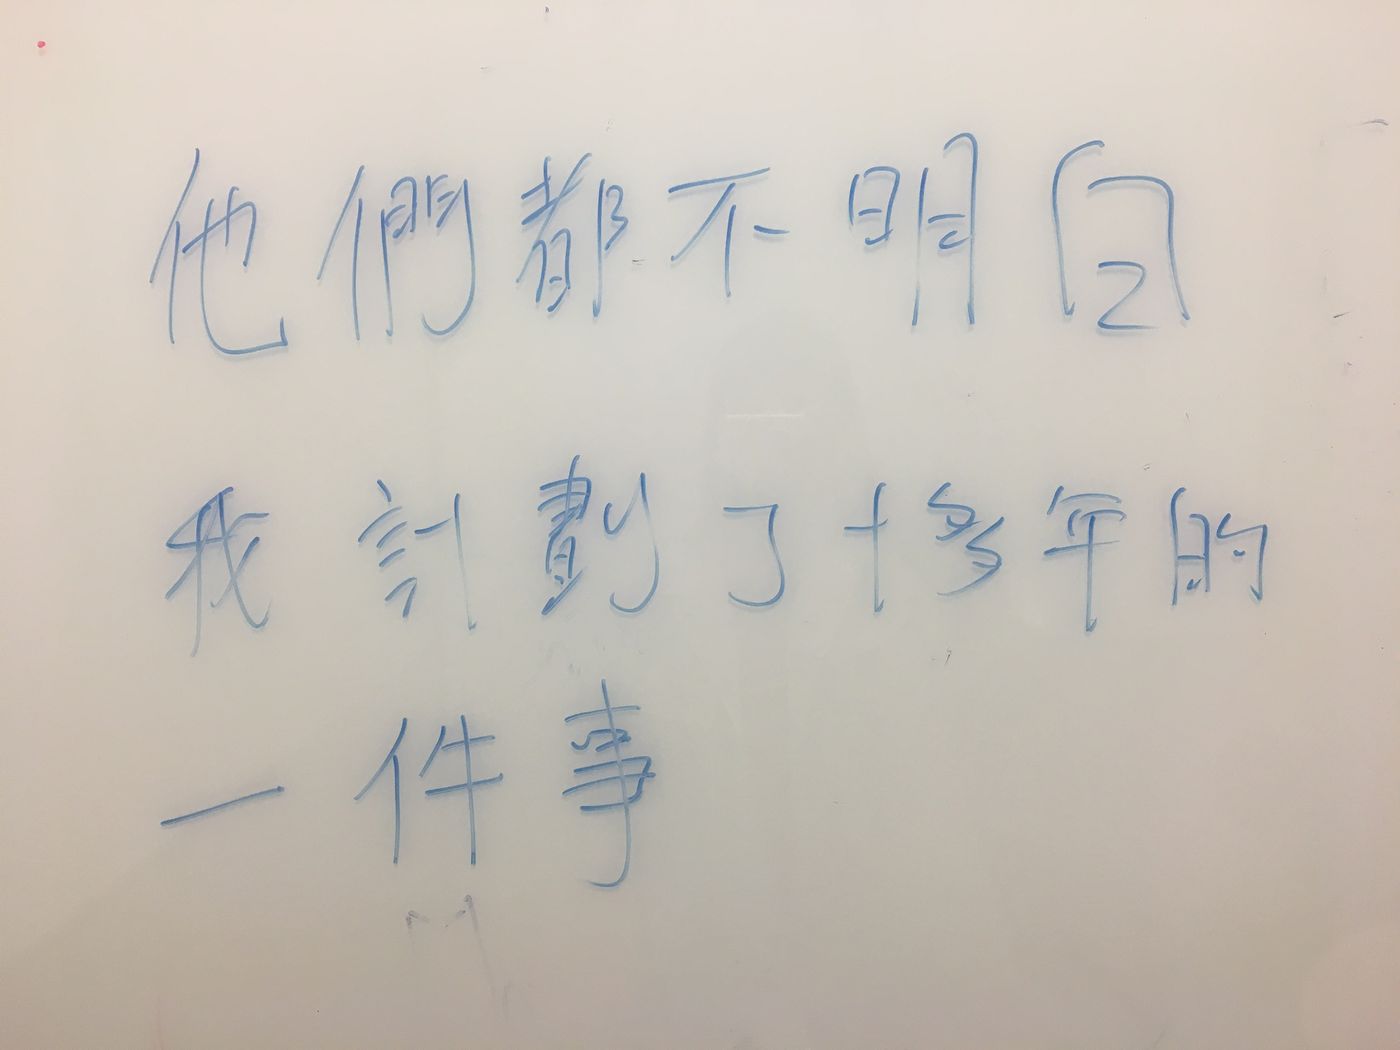 他們都不明白
我計劃了十多年的
一件事